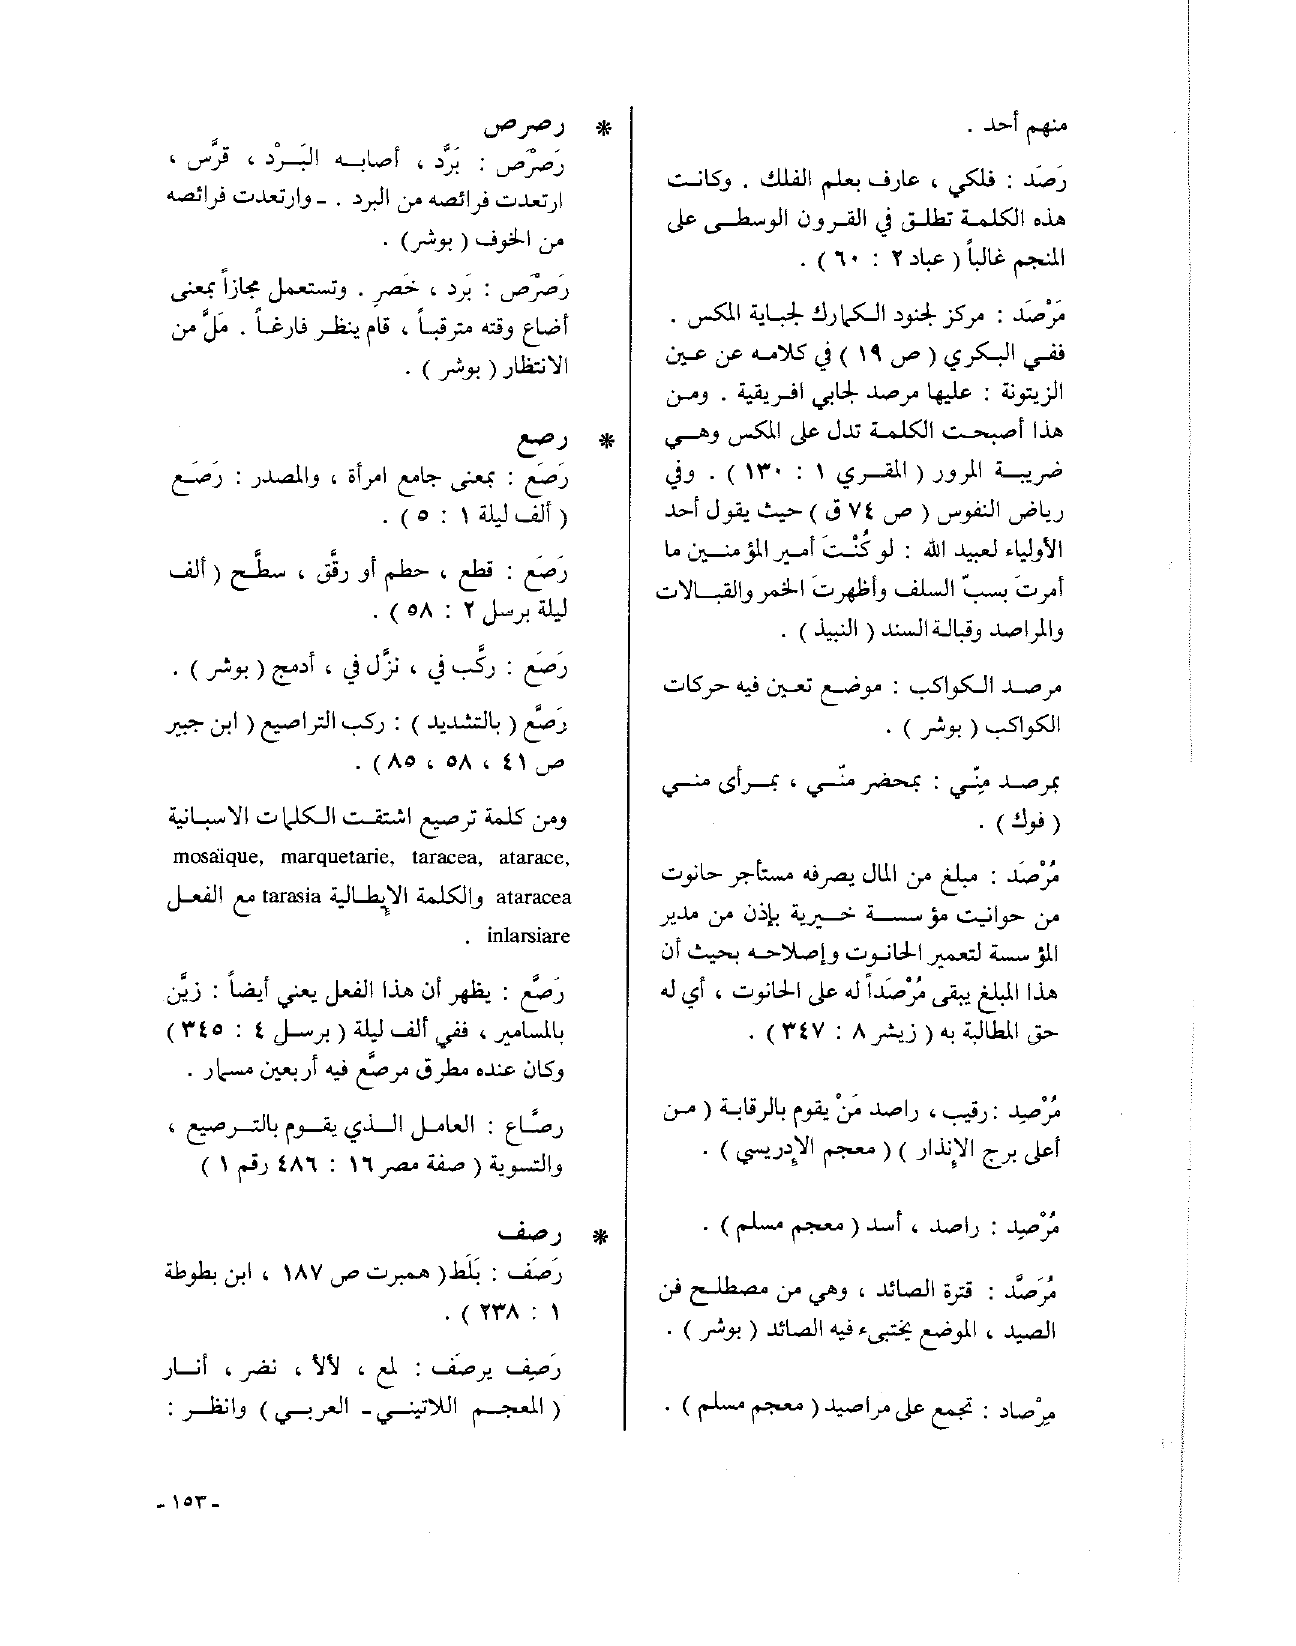 منهم أحد .
رَصَد : فلكي ، عارف بعلم الفلك . وكانت
هذه الكلمة تطلق في القرون الوسطى على
المنجم غالباً ( عباد ٢ : ٦٠ ) .
مَرْصَد : مركز لجنود الكمارك لجباية المكس .
ففي البكري ( ص ١٩ ) في كلامه عن عين
الزيتونة : عليها مرصد لجابي افريقية . ومن
هذا أصبحت الكلمة تدل على المكس وهي
ضريبة المرور ( المقري ١ : ١٣٠ ) . وفي
رياض النفوس ( ص ٧٤ ق ) حيث يقول أحد
الأولياء لعبيد الله : لو كُنْتَ أمير المؤمنين ما
أمرتَ بسبّ السلف وأظهرتَ الخمر والقبالات
والمراصد وقبالة السند ( النبيذ ) .
مرصد الكواكب : موضع تعين فيه حركات
الكواكب ( بوشر ) .
بمرصد مِنّي : بمحضر منّي ، بمرأى مني
( فوك ) .
مُرْصَد : مبلغ من المال يصرفه مستأجر حانوت
من حوانيت مؤسسة خيرية بإذن من مدير
المؤسسة لتعمير الحانوت وإصلاحه بحيث أن
هذا المبلغ يبقى مُرْصَداً له على الحانوت ، أي له
حق المطالبة به ( زيشر ٨ : ٣٤٧ ) .
مُرْصِد : رقيب ، راصد مَنْ يقوم بالرقابة ( من
أعلى برج الإنذار ) ( معجم الإدريسي ) .
مُرْصِد : راصد ، أسد ( معجم مسلم ) .
مُرَصَّد : قترة الصائد ، وهي من مصطلح فن
الصيد ، الموضع يختبىء فيه الصائد ( بوشر ) .
مِرْصاد : تجمع على مراصيد ( معجم مسلم ) .
* رصرص
رَصْرَص : بَرَّد ، أصابه البَرْد ، قرَّس ،
ارتعدت فرائصه من البرد . - وارتعدت فرائصه
من الخوف ( بوشر ) .
رَصْرَص : بَرد ، خَصر . وتستعمل مجازاً بمعنى
أضاع وقته مترقباً ، قام ينظر فارغاً . مَلَّ من
الانتظار ( بوشر ) .
* رصع
رَصَع : بمعنى جامع امرأة ، والمصدر : رَصَع
( ألف ليلة ١ : ٥ ) .
رَصَع : قطع ، حطم أو رقَّق ، سطَّح ( ألف
ليلة برسل ٢ : ٥٨ ) .
رَصَع : ركَّب في ، نزَّل في ، أدمج ( بوشر ) .
رَصَّع ( بالتشديد ) : ركب التراصيع ( ابن جبير
ص ٤١ ، ٥٨ ، ٨٥ ) .
ومن كلمة ترصيع اشتقت الكلمات الاسبانية
mosaïque, marquetarie, taracea, atarace,
ataracea والكلمة الإيطالية tarasia مع الفعل
inlarsiare .
رَصَّع : يظهر أن هذا الفعل يعني أيضاً : زيَّن
بالمسامير ، ففي ألف ليلة ( برسل ٤ : ٣٤٥ )
وكان عنده مطرق مرصَّع فيه أربعين مسمار .
رصَّاع : العامل الذي يقوم بالترصيع ،
والتسوية ( صفة مصر ١٦ : ٤٨٦ رقم ١ )
* رصف
رَصَف : بَلَط ( همبرت ص ١٨٧ ، ابن بطوطة
١ : ٢٣٨ ) .
رَصِف يرصَف : لمع ، لألأ ، نضر ، أنار
( المعجم اللاتيني - العربي ) وانظر :
- ١٥٣ -